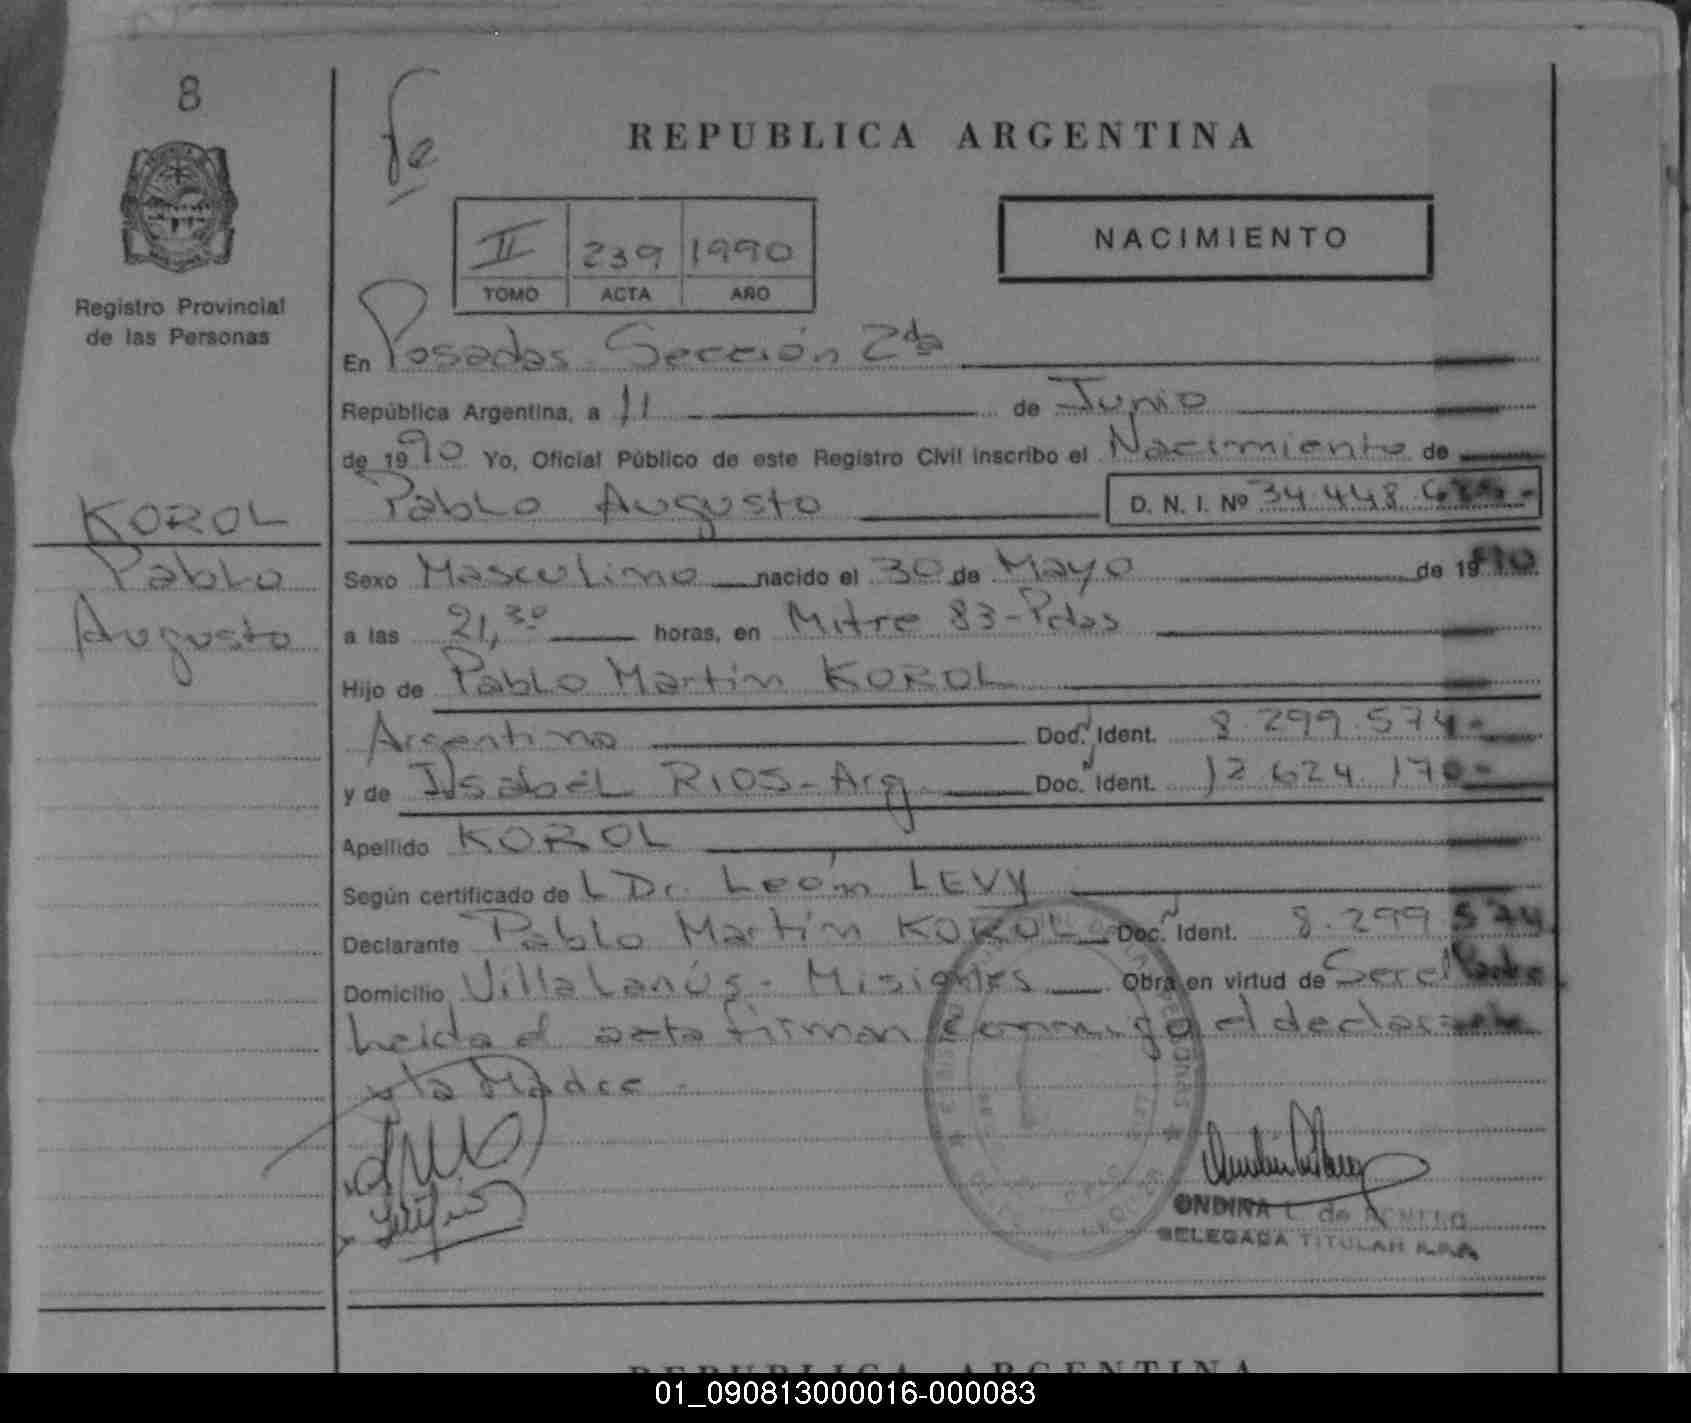 8
REPUBLICA ARGENTINA
II 239 1990
TOMO ACTA AÑO
NACIMIENTO
Registro Provincial
de las Personas
En Posadas Sección 2da
República Argentina, a 11 de Junio
de 1990 Yo, Oficial Público de este Registro Civil inscribo el Nacimiento de
KOROL
Pablo
Augusto
Pablo Augusto D. N. I. Nº 34.448.
Sexo Masculino nacido el 30 de Mayo de 1990
a las 21,30 horas, en Mitre 83-Pdas
Hijo de Pablo Martín KOROL
Argentino Doc. Ident. 8.299.574-
y de Isabel RIOS-Arg Doc. Ident. 12.624.170-
Apellido KOROL
Según certificado de L Dr. León LEVY
Declarante Pablo Martín KOROL Doc. Ident. 8.299.574
Domicilio Villa Lanús - Misiones Obra en virtud de Ser el Padre
Leida el acta firman conmigo el declarante
y la Madre -
ONDINA L. de
DELEGADA TITULAR
REPUBLICA ARGENTINA
01_090813000016-000083